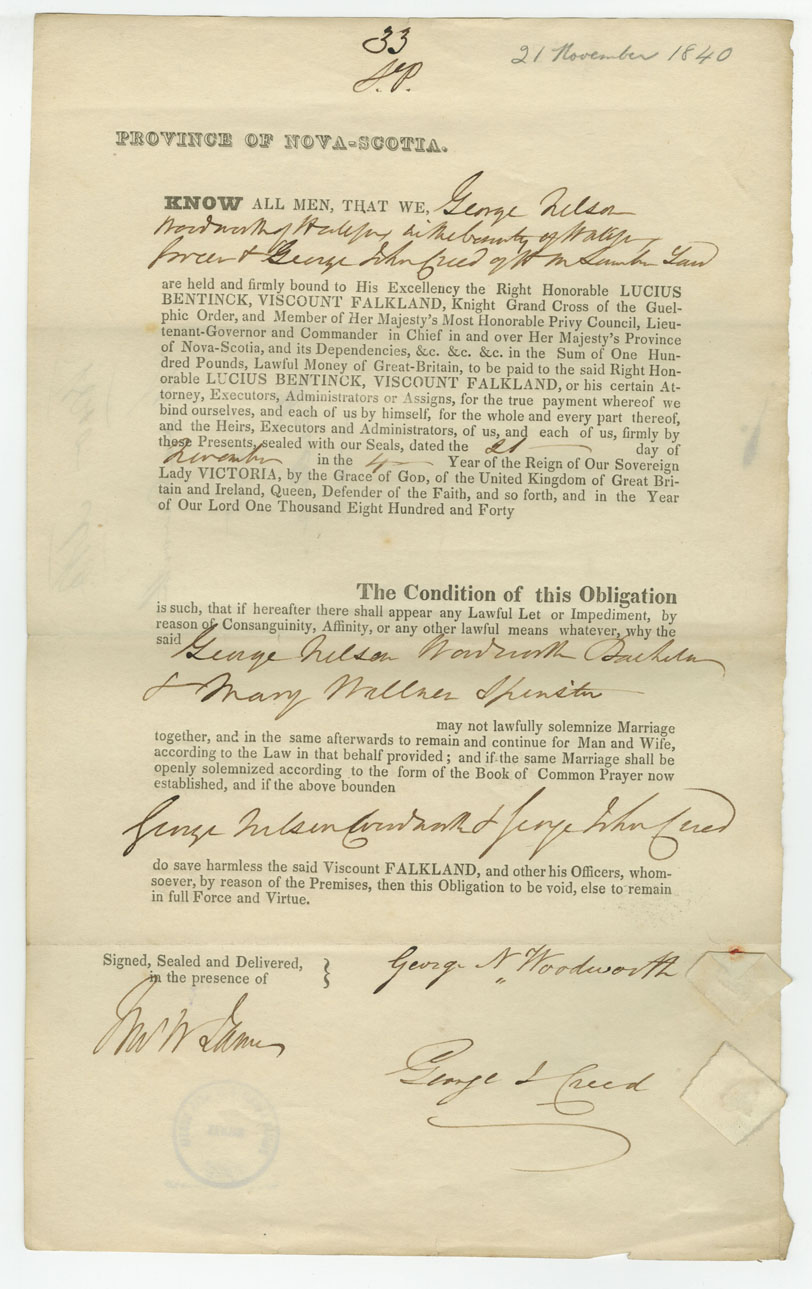 33
21 November 1840
S.P.
PROVINCE OF NOVA-SCOTIA.
KNOW ALL MEN, THAT WE, George Nelson
Woodworth of Halifax in the County of Halifax
& George John Creed of H M Yard
are held and firmly bound to His Excellency the Right Honorable LUCIUS
BENTINCK, VISCOUNT FALKLAND, Knight Grand Cross of the Guel-
phic Order, and Member of Her Majesty's Most Honorable Privy Council, Lieu-
tenant-Governor and Commander in Chief in and over Her Majesty's Province
of Nova-Scotia, and its Dependencies, &c. &c. &c. in the Sum of One Hun-
dred Pounds, Lawful Money of Great-Britain, to be paid to the said Right Hon-
orable LUCIUS BENTINCK, VISCOUNT FALKLAND, or his certain At-
torney, Executors, Administrators or Assigns, for the true payment whereof we
bind ourselves, and each of us by himself, for the whole and every part thereof,
and the Heirs, Executors and Administrators, of us, and each of us, firmly by
these Presents, sealed with our Seals, dated the 21 day of
November in the 4 Year of the Reign of Our Sovereign
Lady VICTORIA, by the Grace of GOD, of the United Kingdom of Great Bri-
tain and Ireland, Queen, Defender of the Faith, and so forth, and in the Year
of Our Lord One Thousand Eight Hundred and Forty
The Condition of this Obligation
is such, that if hereafter there shall appear any Lawful Let or Impediment, by
reason of Consanguinity, Affinity, or any other lawful means whatever, why the
said George Nelson Woodworth Bachelor
& Mary Wallner Spinster
may not lawfully solemnize Marriage
together, and in the same afterwards to remain and continue for Man and Wife,
according to the Law in that behalf provided; and if the same Marriage shall be
openly solemnized according to the form of the Book of Common Prayer now
established, and if the above bounden
George Nelson Woodworth & George John Creed
do save harmless the said Viscount FALKLAND, and other his Officers, whom-
soever, by reason of the Premises, then this Obligation to be void, else to remain
in full Force and Virtue.
Signed, Sealed and Delivered,
in the presence of
George N Woodworth
W James
George J Creed